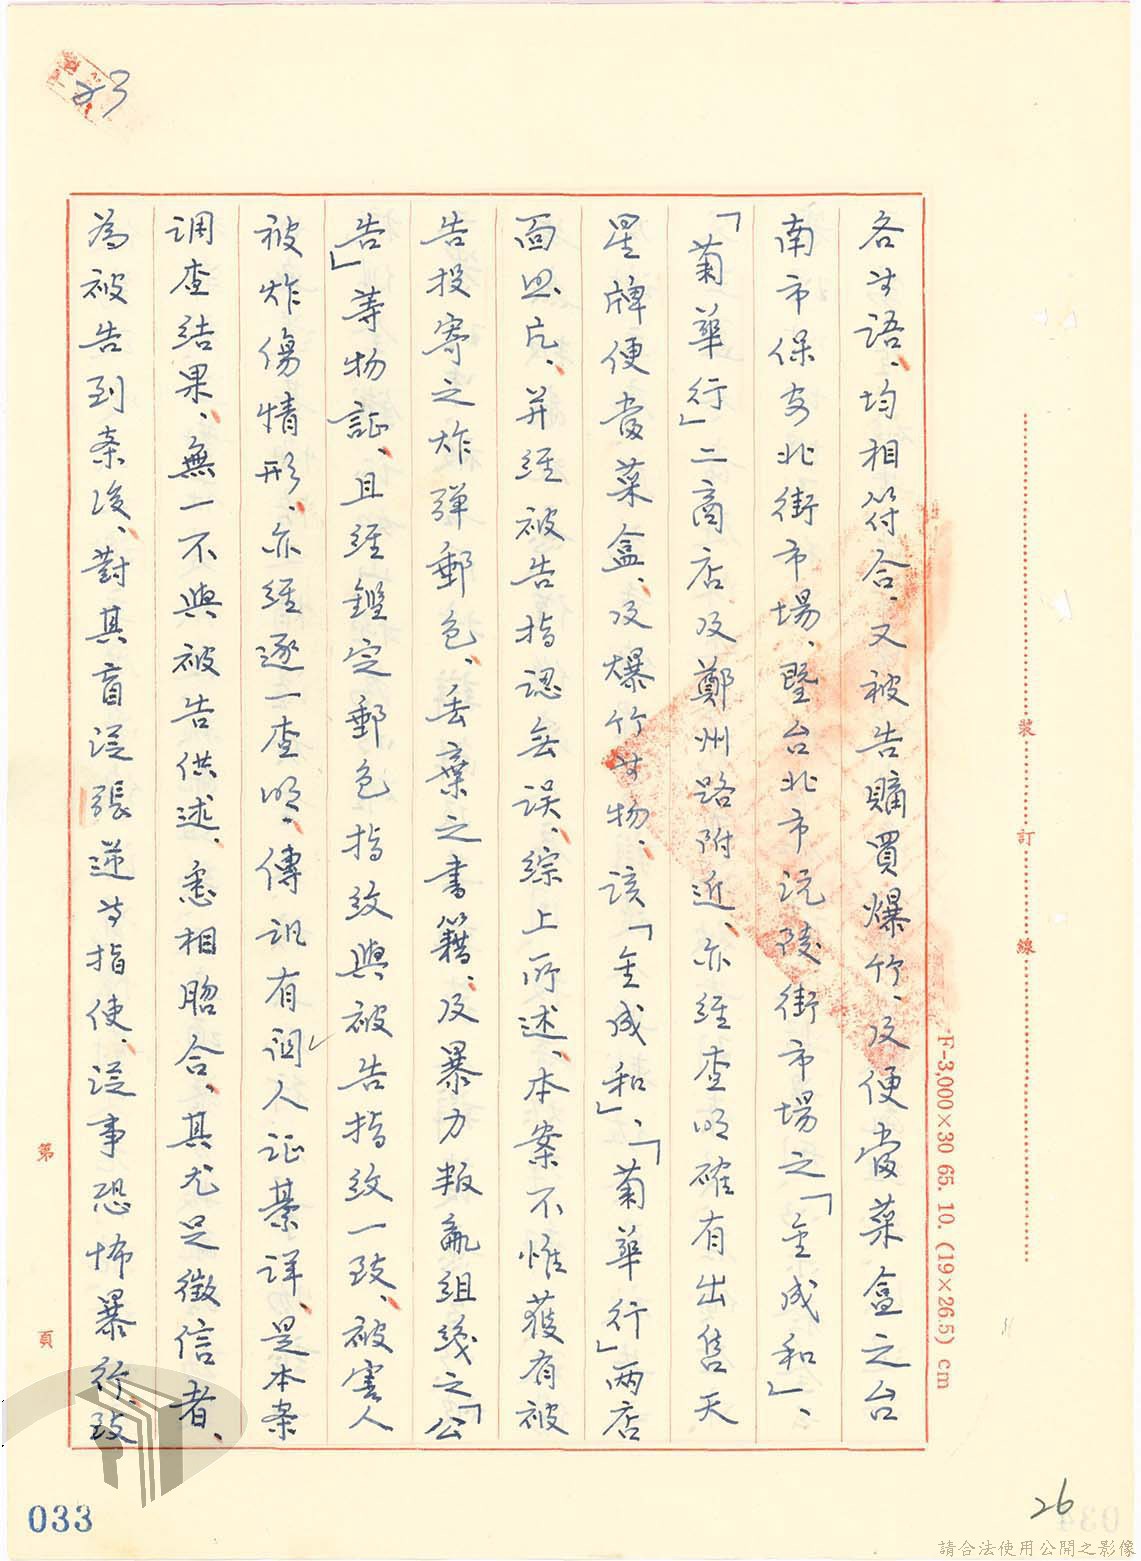 各等語、均相符合、又被告購買爆竹、及便當菜盒之台
南市保安北街市場、暨台北市沅陵街市場之「金成和」、
「菊華行」二商店及鄭州路附近、亦經查明確有出售天
星牌便當菜盒、及爆竹等物、該「金成和」、「菊華行」兩店
面照片、并經被告指認無误、綜上所述、本案不惟獲有被
告投寄之炸弹郵包、丢棄之書籍、及暴力叛亂組織之「公
告」等物証、且經鑑定郵包指紋與被告指紋一致、被害人
被炸傷情形、亦經逐一查明、傳訊有関人证綦详、是本案
调查结果、無一不與被告供述、悉相脗合、其尤足徵信者、
為被告到案後、對其盲從張逆等指使、從事恐怖暴行、致
23
裝
訂
線
F-3,000×30 65. 10. (19×26.5) cm
第
頁
033
26
034
請合法使用公開之影像